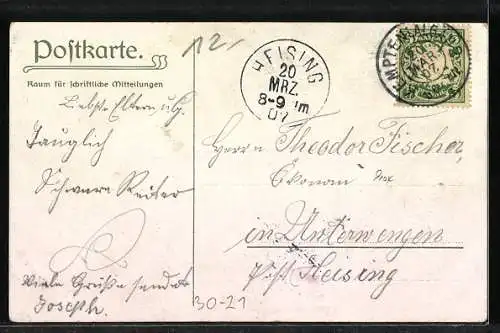 Postkarte.
12.-
Raum für schriftliche Mitteilungen
Liebste Eltern u. G.
Tauglich
Schwere Reiter
Viele Grüße sendet
Joseph.
HEISING
20
MRZ.
8-9 Vm
07
KEMPTEN
MRZ
07
Herrn Theodor Fischer,
Ökonom
in Unterwengen
Post Heising
30-21